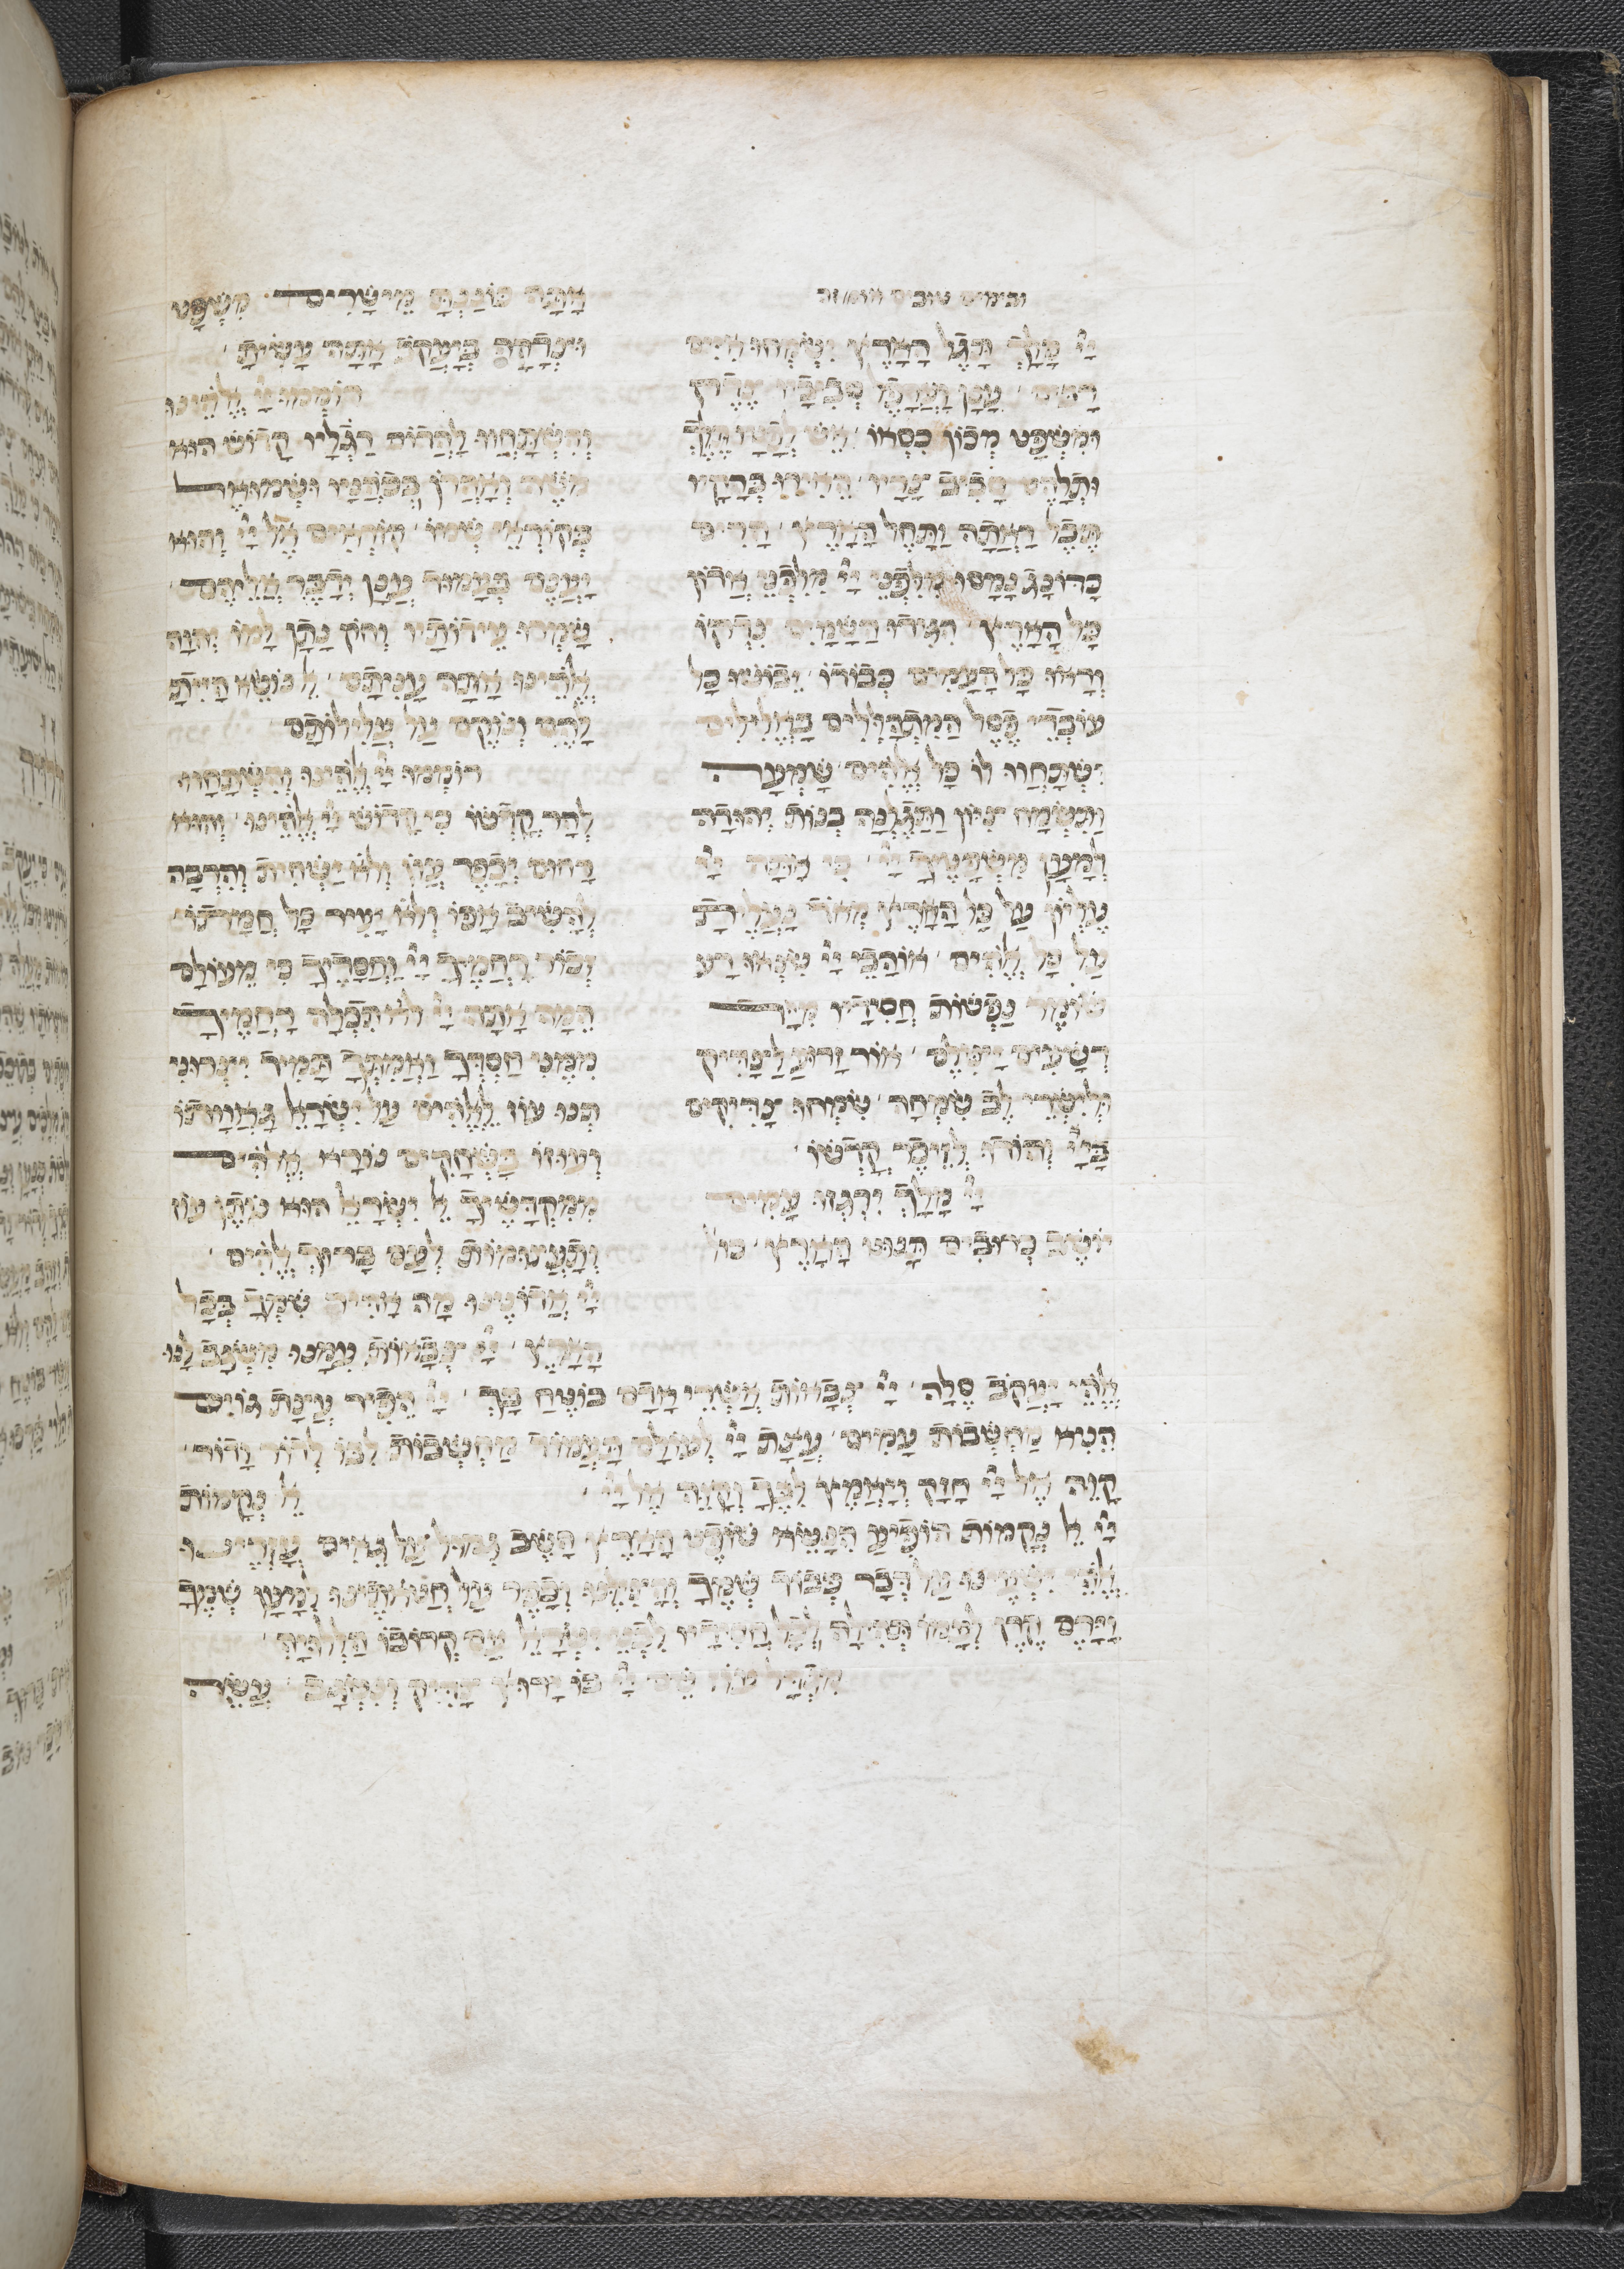 ובימים טובים אומ' זה
יי מלך תגל הארץ ישמחו איים
רבים ענן וערפל סביביו צדק
ומשפט מכון כסאו אש לפניו תלך
ותלהט סביב צריו האירו ברקיו
תבל ראתה ותחל הארץ הרים
כדונג נמסו מלפני יי מלפני אדון
כל הארץ הגידו השמים צדקו
וראו כל העמים כבודו יבושו כל
עובדי פסל המתהללים באלילים
השתחוו לו כל אלהים שמעה
ותשמח ציון ותגלנה בנות יהודה
למען משפטיך יי כי אתה יי
עליון על כל הארץ מאד נעלית
על כל אלהים אוהבי יי שנאו רע
שומר נפשות חסידיו מיד
רשעים יצילם אור זרוע לצדיק
ולישרי לב שמחה שמחו צדיקים
ביי והודו לזכר קדשו
יי מלך ירגזו עמים
יושב כרובים תנוט הארץ כול'
אתה כוננת מישרים משפט
וצדקה ביעקב אתה עשית
רוממו יי אלהינו
והשתחוו להדום רגליו קדוש הוא
משה ואהרן בכהניו ושמואל
בקוראי שמו קוראים אל יי והוא
יענם בעמוד ענן ידבר אליהם
שמרו עידותיו וחק נתן למו יהוה
אלהינו אתה עניתם אל נושא היית
להם ונוקם על עלילותם
רוממו יי אלהינו והשתחוו
להר קדשו כי קדוש יי אלהינו והוא
רחום יכפר עון ולא ישחית והרבה
להשיב אפו ולא יעיר כל חמתו
זכור רחמיך יי וחסדיך כי מעולם
המה אתה יי לא תכלא רחמיך
ממני חסדך ואמתך תמיד יצרוני
תנו עוז לאלהים על ישראל גאותו
ועוזו בשחקים נורא אלהים
ממקדשיך אל ישראל הוא נותן עוז
ותעצומות לעם ברוך אלהים
יי אדונינו מה אדיר שמך בכל
הארץ יי צבאות עמנו משגב לנו
אלהי יעקב סלה יי צבאות אשרי אדם בוטח בך יי הפיר עצת גוים
הניא מחשבות עמים עצת יי לעולם תעמוד מחשבות לבו לדור ודור
קוה אל יי חזק ויאמץ לבך וקוה אל יי אל נקמות
יי אל נקמות הופיע הנשא שופט הארץ השב גמול על גאים עזרינו
אלהי ישעינו על דבר כבוד שמך והצילנו וכפר על חטאותינו למען שמך
וירם קרן לעמו תהלה לכל חסידיו לבני ישראל עם קרובו הללויה
מגדל עוז שם יי בו ירוץ צדיק ונשגב עשה